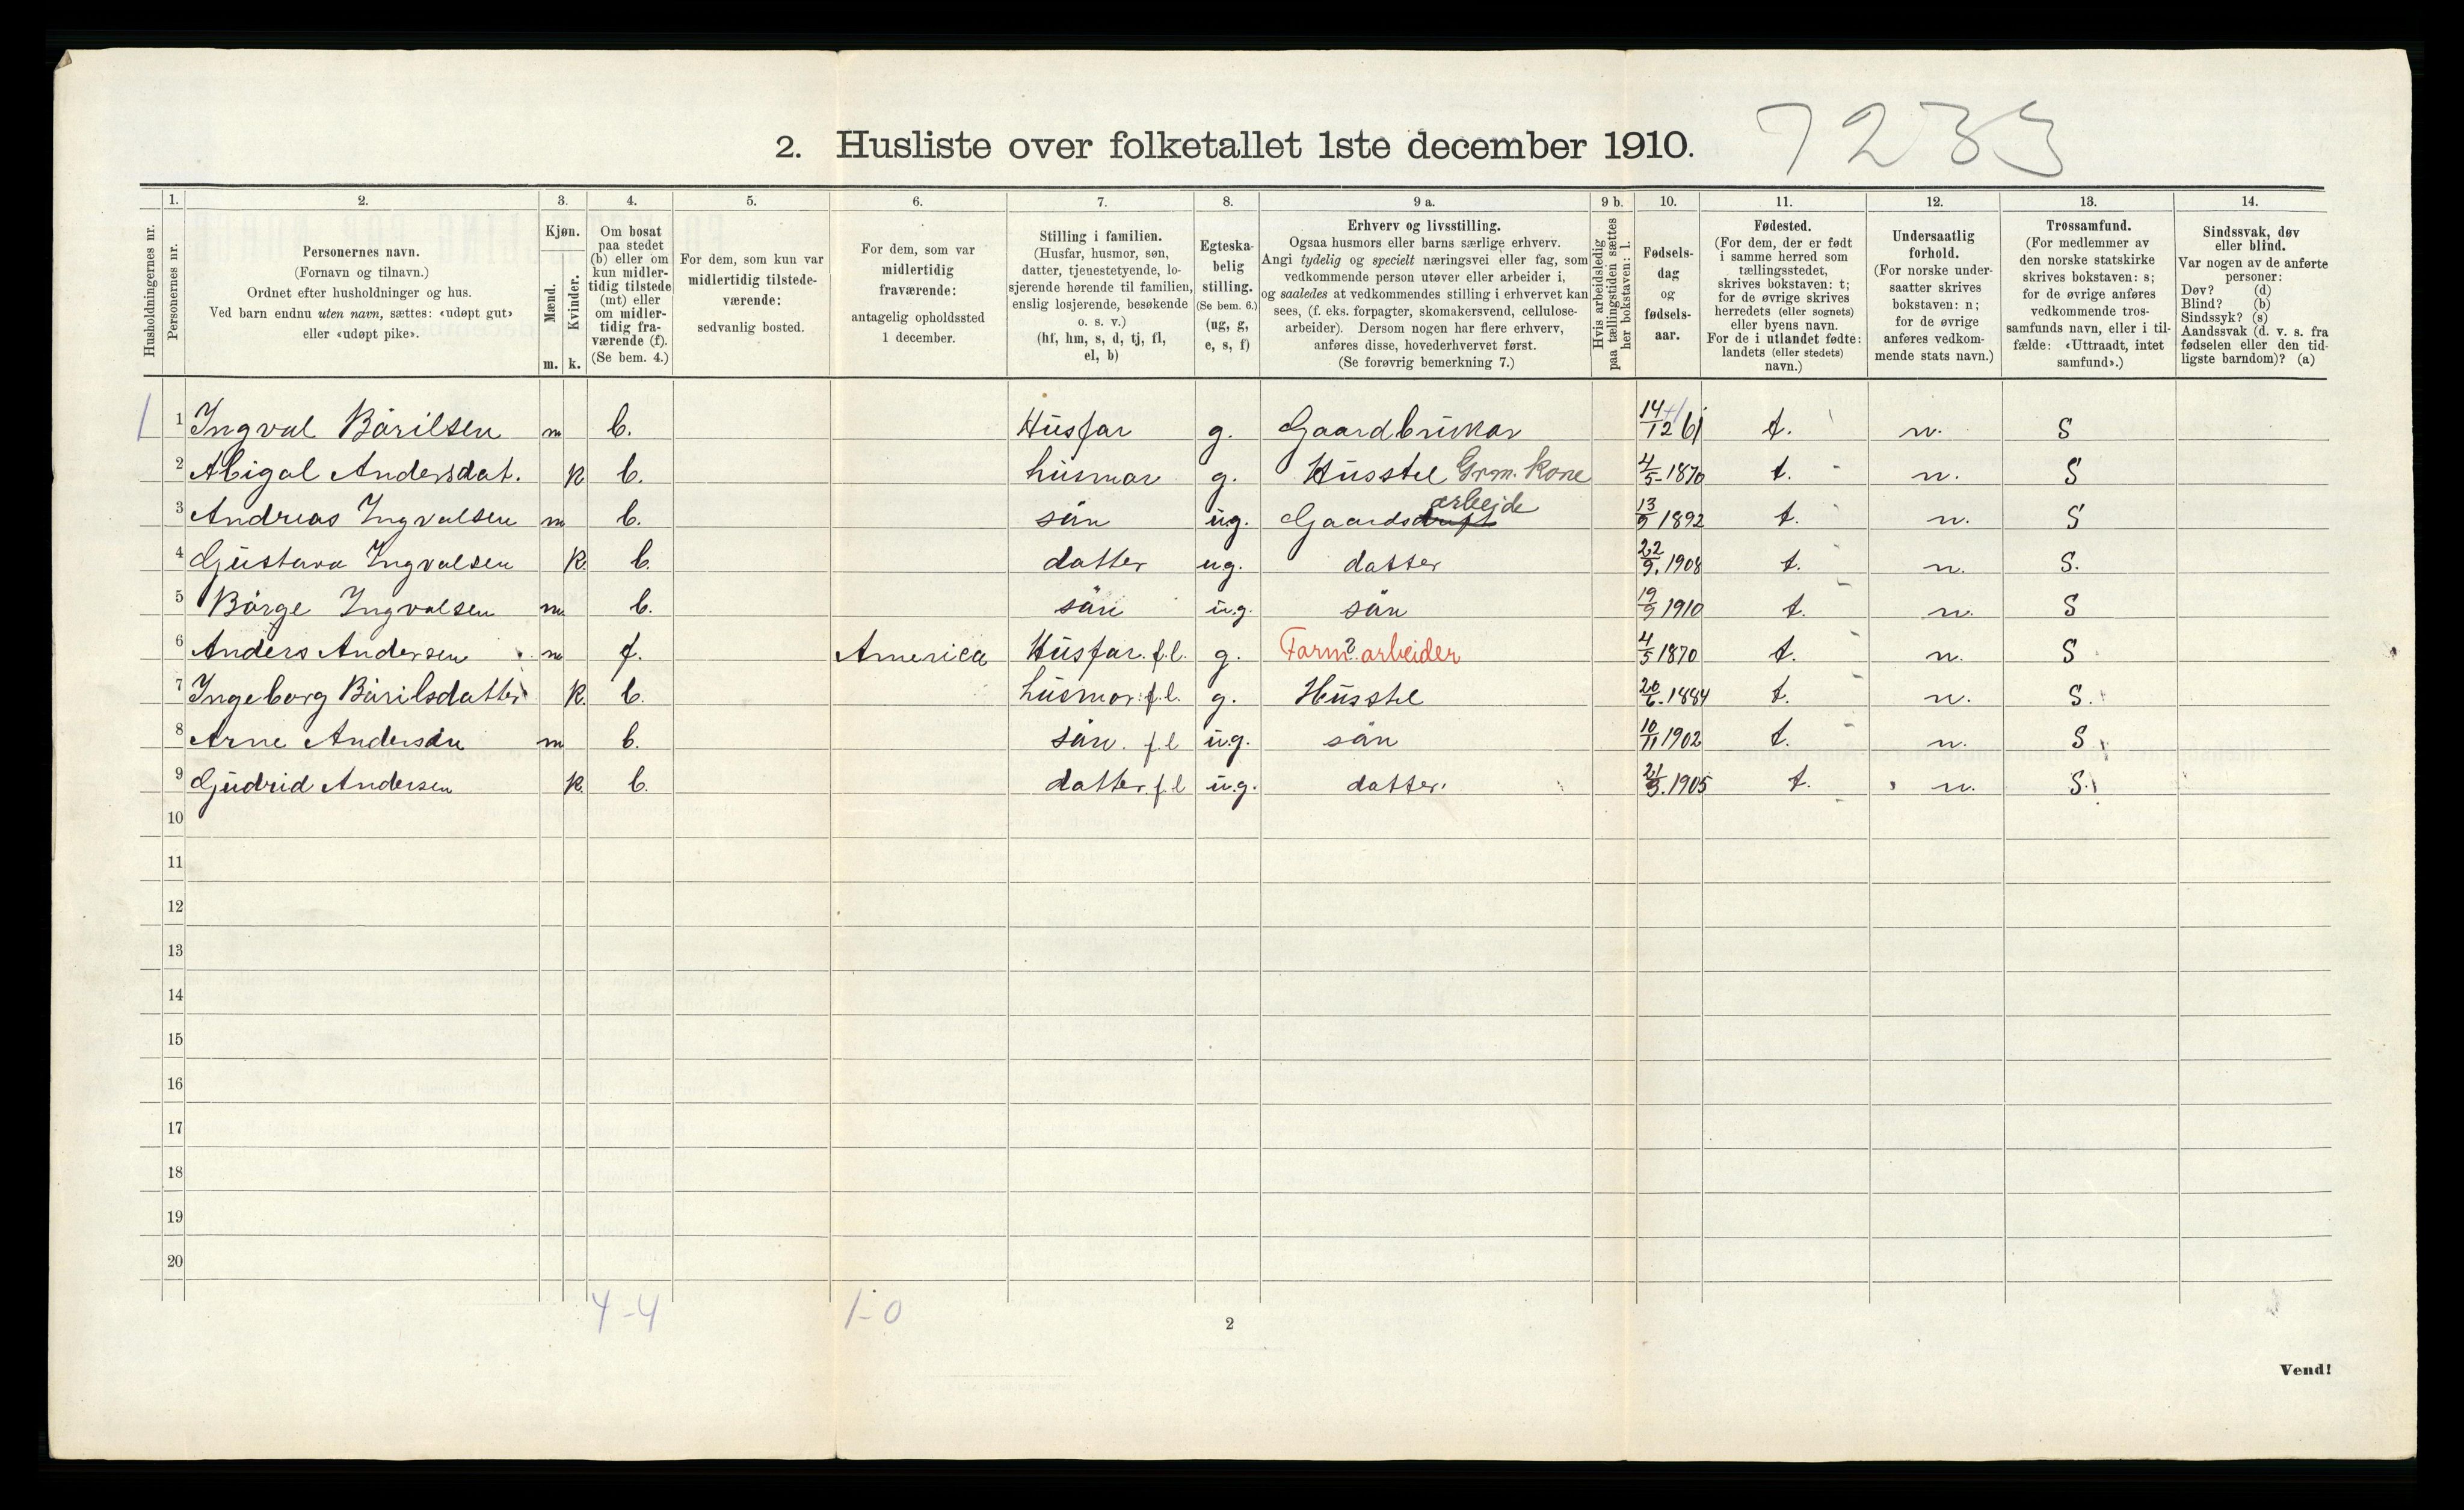 7233
2. Husliste over folketallet 1ste december 1910.
Husholdningernes nr.
1.
Personernes nr.
2.
Personernes navn.
(Fornavn og tilnavn.)
Ordnet efter husholdninger og hus.
Ved barn endnu uten navn, sættes: «udøpt gut»
eller «udøpt pike».
3.
Kjøn.
Mænd.
Kvinder.
m. k.
4.
Om bosat
paa stedet
(b) eller om
kun midler-
tidig tilstede
(mt) eller
om midler-
tidig fra-
værende (f).
(Se bem. 4.)
5.
For dem, som kun var
midlertidig tilstede-
værende:
sedvanlig bosted.
6.
For dem, som var
midlertidig
fraværende:
antagelig opholdssted
1 december.
7.
Stilling i familien.
(Husfar, husmor, søn,
datter, tjenestetyende, lo-
sjerende hørende til familien,
enslig losjerende, besøkende
o. s. v.)
(hf, hm, s, d, tj, fl,
el, b)
8.
Egteska-
belig
stilling.
(Se bem. 6.)
(ug, g,
e, s, f)
9 a.
Erhverv og livsstilling.
Ogsaa husmors eller barns særlige erhverv.
Angi tydelig og specielt næringsvei eller fag, som
vedkommende person utøver eller arbeider i,
og saaledes at vedkommendes stilling i erhvervet kan
sees, (f. eks. forpagter, skomakersvend, cellulose-
arbeider). Dersom nogen har flere erhverv,
anføres disse, hovederhvervet først.
(Se forøvrig bemerkning 7.)
9 b.
Hvis arbeidsledig
paa tællingstiden sættes
her bokstaven: l.
10.
Fødsels-
dag
og
fødsels-
aar.
11.
Fødested.
(For dem, der er født
i samme herred som
tællingsstedet,
skrives bokstaven: t;
for de øvrige skrives
herredets (eller sognets)
eller byens navn.
For de i utlandet fødte:
landets (eller stedets)
navn.)
12.
Undersaatlig
forhold.
(For norske under-
saatter skrives
bokstaven: n;
for de øvrige
anføres vedkom-
mende stats navn.)
13.
Trossamfund.
(For medlemmer av
den norske statskirke
skrives bokstaven: s;
for de øvrige anføres
vedkommende tros-
samfunds navn, eller i til-
fælde: «Uttraadt, intet
samfund».)
14.
Sindssvak, døv
eller blind.
Var nogen av de anførte
personer:
Døv? (d)
Blind? (b)
Sindssyk? (s)
Aandssvak (d. v. s. fra
fødselen eller den tid-
ligste barndom)? (a)
1 1 Ingval Bårilsen m b. Husfar g. Gaardbrukar 14/12 61 t. n. S
2 Abigal Andersdat. k b. husmor g. Husstel Grm. kone 4/5-1870 t. n. S
3 Andreas Ingvalsen m b. sån ug. Gaardsdrift arbeide 13/9 1892 t. n. S
4 Gustava Ingvalsen k. b. datter ug. datter 22/9. 1908 t. n. S.
5 Bårge Ingvalsen m b. sån u.g. sån 19/9 1910 t. n. S
6 Anders Andersen m f. America Husfar. f.l. g. Farm?arbeider 4/5 1870 t. n. S
7 Ingeborg Bårilsdatter k. b. husmor. f.l. g. Husstel 20/6. 1884 t. n. S.
8 Arne Andersen m b. sån. f.l u.g. sån 10/11 1902 t. n. S
9 Gudrid Andersen k. b. datter. f.l u.g. datter. 21/3. 1905 t. n. S.
10
11
12
13
14
15
16
17
18
19
20
4-4 1-0
2
Vend!